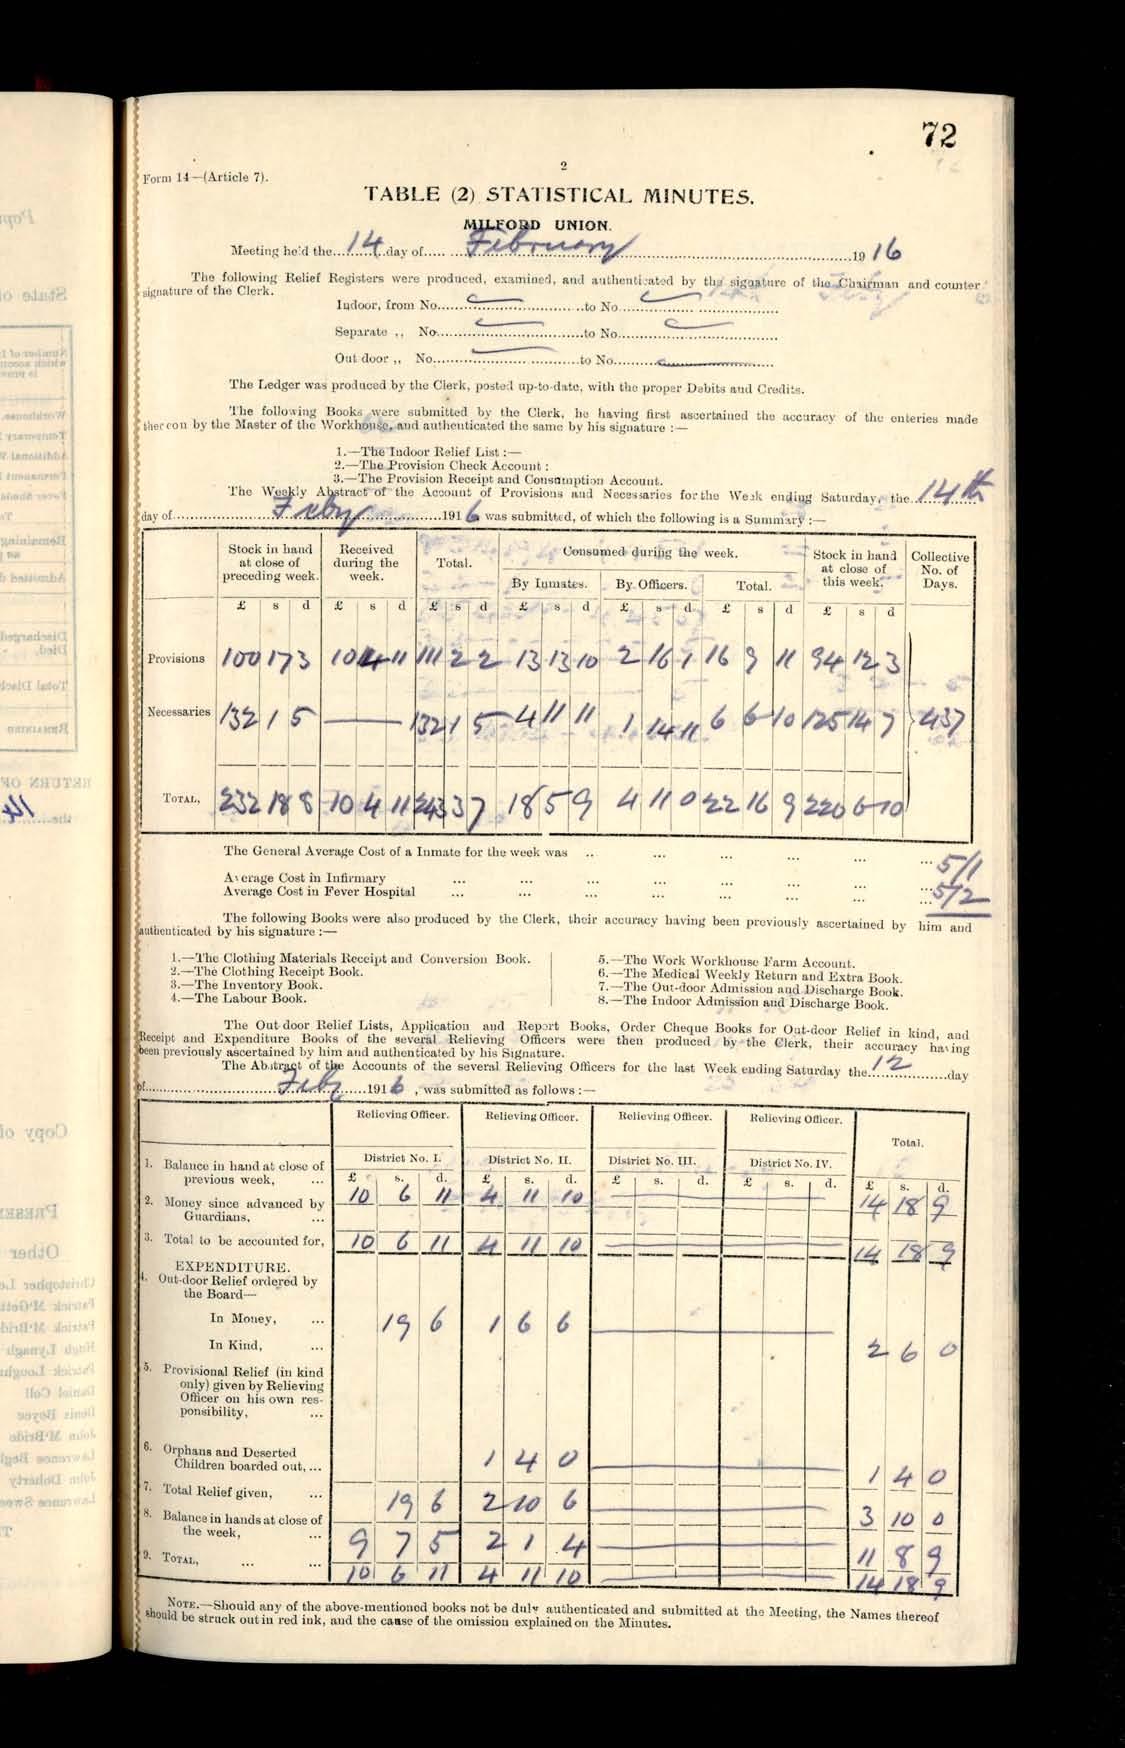 72
Form 14—(Article 7).
2
TABLE (2) STATISTICAL MINUTES.
MILFORD UNION.
Meeting held the 14 day of February 1916
The following Relief Registers were produced, examined, and authenticated by the signature of the Chairman and counter
signature of the Clerk.
Indoor, from No. to No.
Separate ,, No. to No.
Out door ,, No. to No.
The Ledger was produced by the Clerk, posted up-to-date, with the proper Debits and Credits.
The following Books were submitted by the Clerk, he having first ascertained the accuracy of the enteries made
thereon by the Master of the Workhouse, and authenticated the same by his signature :—
1.—The Indoor Relief List :—
2.—The Provision Check Account :
3.—The Provision Receipt and Consumption Account.
The Weekly Abstract of the Account of Provisions and Necessaries for the Week ending Saturday, the 14th
day of Feby 1916 was submitted, of which the following is a Summary :—
Stock in hand at close of preceding week. Received during the week. Total. Consumed during the week. Stock in hand at close of this week. Collective No. of Days.
By Inmates. By Officers. Total.
£ s d £ s d £ s d £ s d £ s d £ s d £ s d
Provisions 100 17 3 10 4 11 111 2 2 13 13 10 2 16 1 16 9 11 94 12 3
Necessaries 132 1 5 — 132 1 5 4 11 11 1 14 11 6 6 10 125 14 7 437
TOTAL, 232 18 8 10 4 11 243 3 7 18 5 9 4 11 0 22 16 9 220 6 10
The General Average Cost of a Inmate for the week was .. ... ... ... ... ... 5/1
Average Cost in Infirmary ... ... ... ... ... ... ... 5/2
Average Cost in Fever Hospital ... ... ... ... ... ... ...
The following Books were also produced by the Clerk, their accuracy having been previously ascertained by him and
authenticated by his signature :—
1.—The Clothing Materials Receipt and Conversion Book.
2.—The Clothing Receipt Book.
3.—The Inventory Book.
4.—The Labour Book.
5.—The Work Workhouse Farm Account.
6.—The Medical Weekly Return and Extra Book.
7.—The Out-door Admission and Discharge Book.
8.—The Indoor Admission and Discharge Book.
The Out-door Relief Lists, Application and Report Books, Order Cheque Books for Out-door Relief in kind, and
Receipt and Expenditure Books of the several Relieving Officers were then produced by the Clerk, their accuracy having
been previously ascertained by him and authenticated by his Signature.
The Abstract of the Accounts of the several Relieving Officers for the last Week ending Saturday the 12 day
of Feby 1916 , was submitted as follows :—
Relieving Officer. Relieving Officer. Relieving Officer. Relieving Officer. Total.
District No. I. District No. II. District No. III. District No. IV.
£ s. d. £ s. d. £ s. d. £ s. d. £ s. d.
1. Balance in hand at close of
previous week, ... 10 6 11 4 11 10 — 14 18 9
2. Money since advanced by
Guardians, ...
3. Total to be accounted for, 10 6 11 4 11 10 — 14 18 9
EXPENDITURE.
4. Out-door Relief ordered by
the Board—
In Money, ... 19 6 1 6 6 — 2 6 0
In Kind, ...
5. Provisional Relief (in kind
only) given by Relieving
Officer on his own res-
ponsibility, ...
6. Orphans and Deserted
Children boarded out, ... 1 4 0 — 1 4 0
7. Total Relief given, ... 19 6 2 10 6 — 3 10 0
8. Balance in hands at close of
the week, ... 9 7 5 2 1 4 — 11 8 9
9. TOTAL, ... ... 10 6 11 4 11 10 — 14 18 9
NOTE.—Should any of the above-mentioned books not be duly authenticated and submitted at the Meeting, the Names thereof
should be struck out in red ink, and the cause of the omission explained on the Minutes.